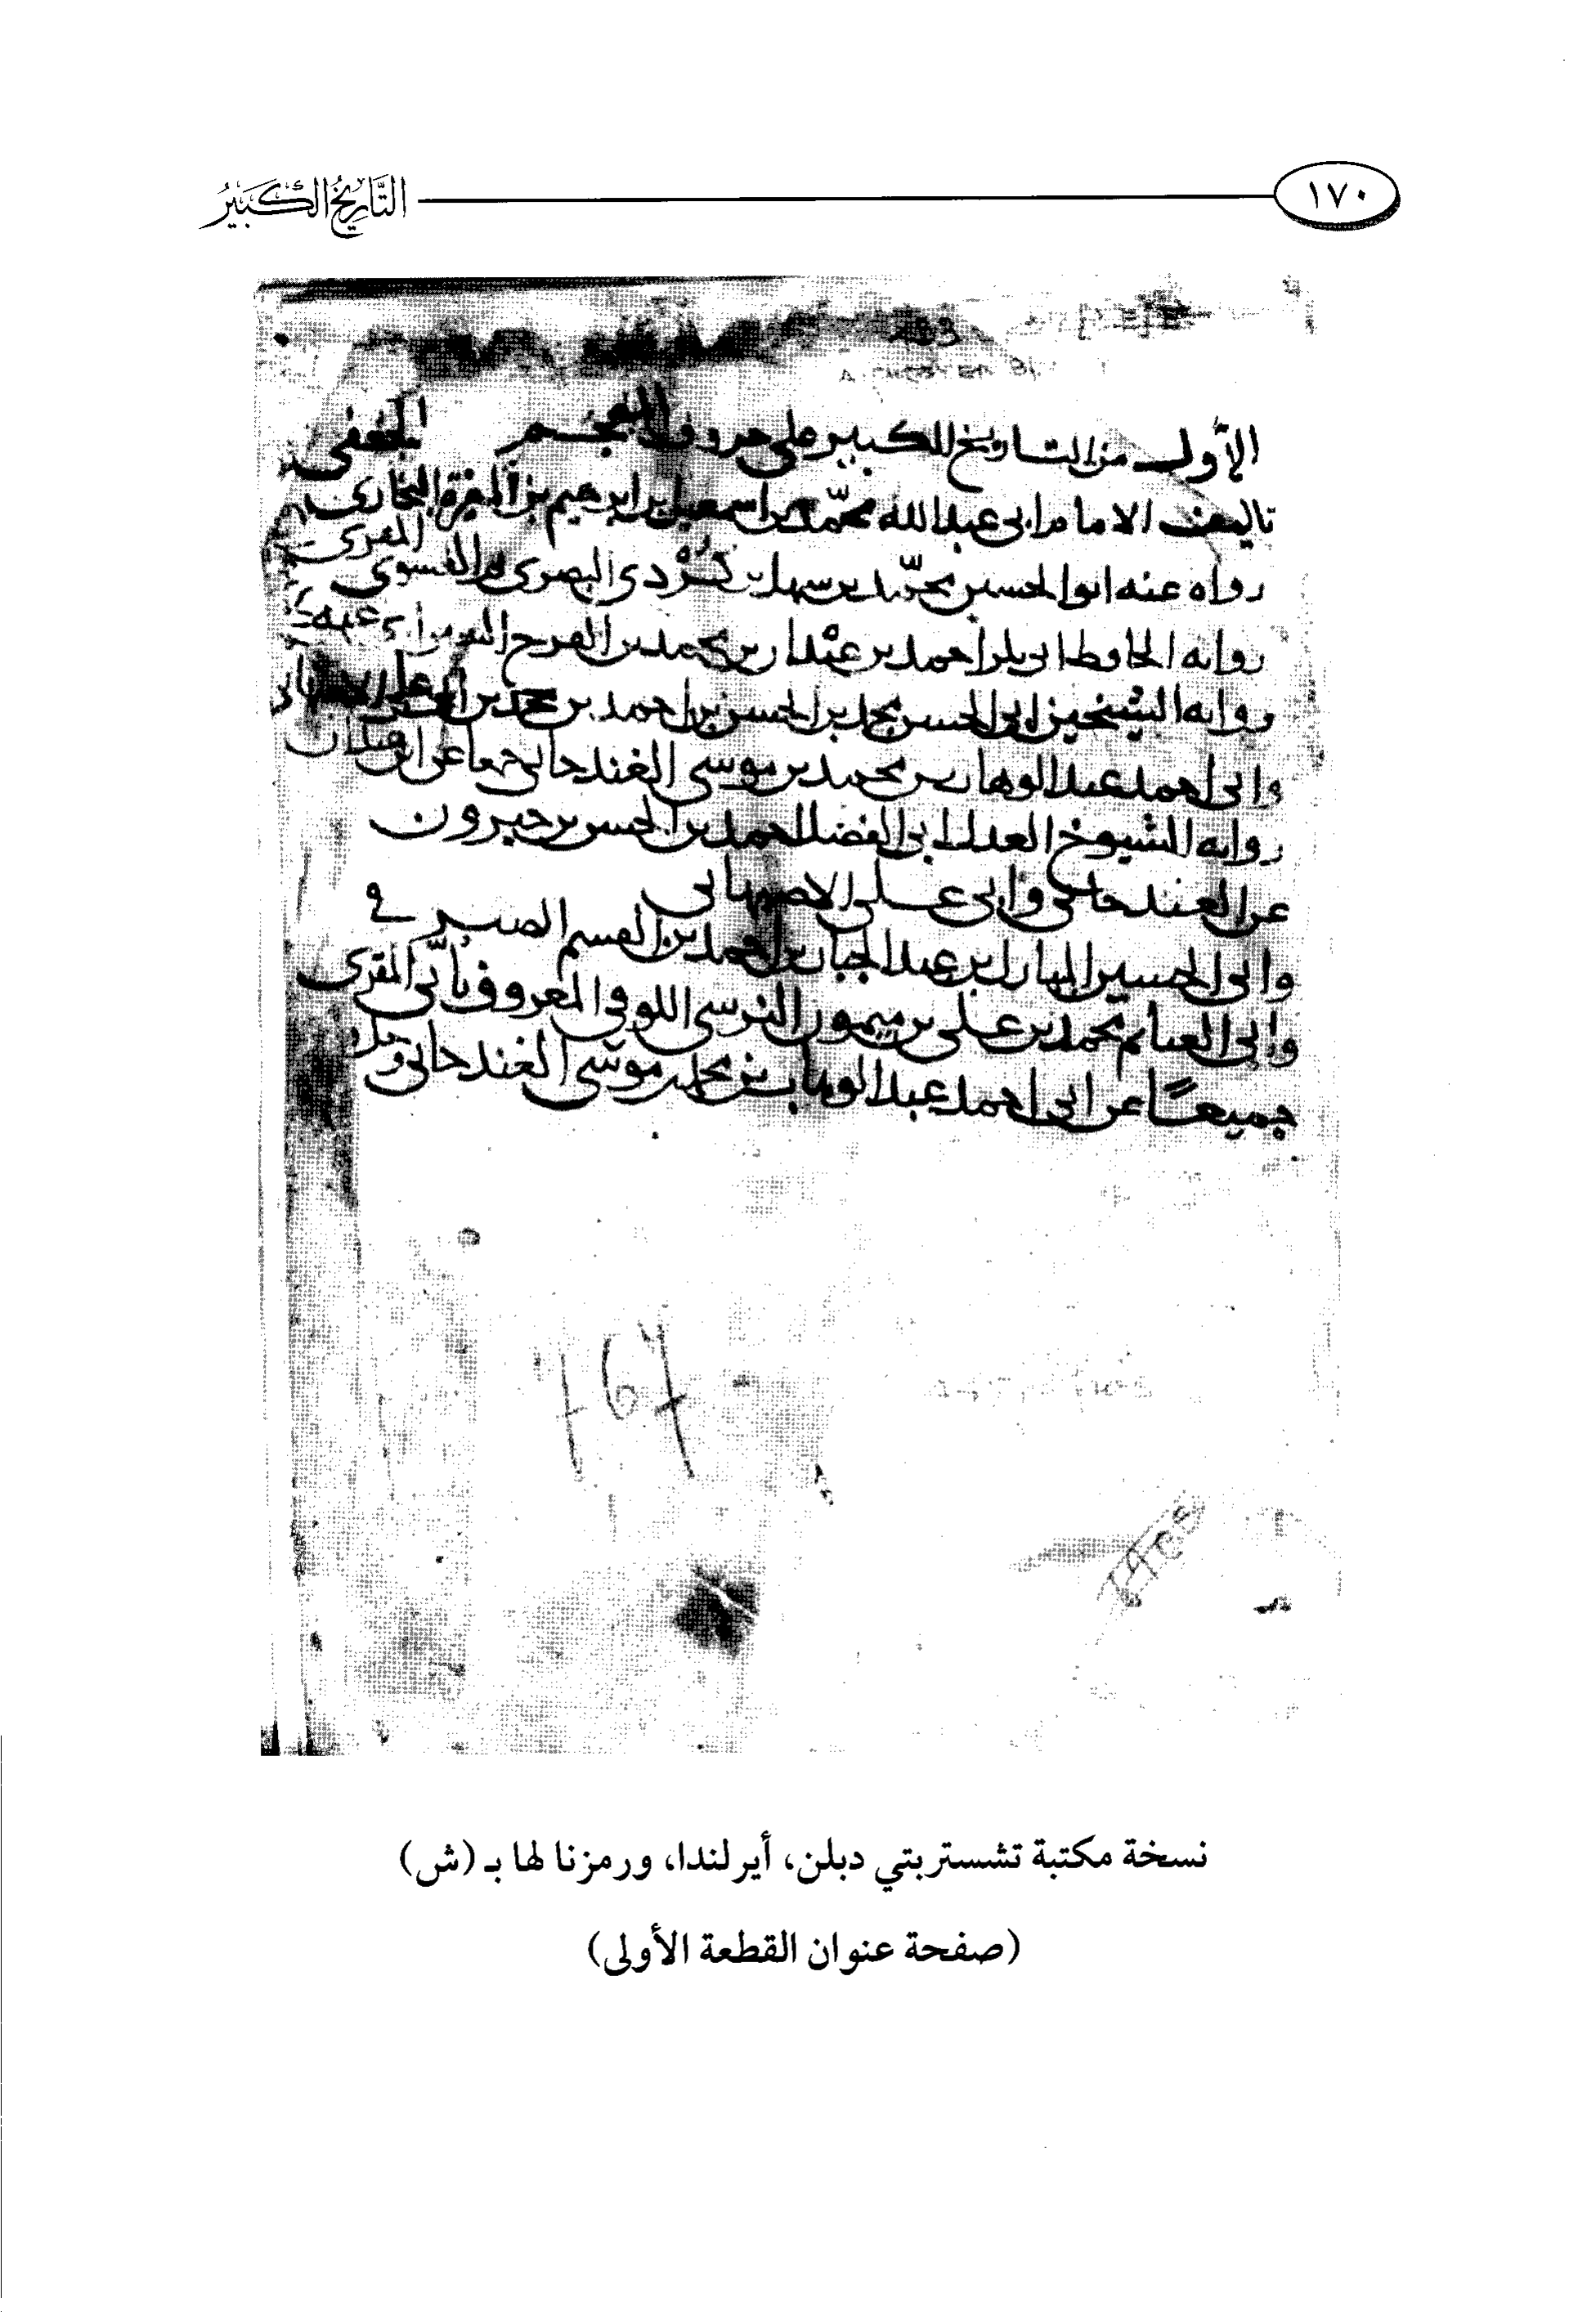 ١٧٠
التَّاريخُ الكَبيرُ
الأول من التاريخ الكبير على حروف المعجم الجعفى
تاليف الامام ابى عبد الله محمّد بن اسمعيل بن ابرهيم بن المغيرة البخارى
رواه عنه ابو الحسين محمّد بن سهل بن كُرْدى البصرى المقرى الفسوى
روايه الحافظ ابى بكر احمد بن عبْدان بن محمد بن الفرج الشيرازى عنه
روايه الشيخين ابى الحسن محمد بن الحسن بن احمد بن محمد بن ابى على الاصبهانى
وابى احمد عبد الوهاب بن محمد بن موسى الغندجانى جميعا عن ابن عبدان
روايه الشيوخ العدل ابى الفضل احمد بن الحسن بن خيرون
عن الغندجانى وابى على الاصبهانى
وابى الحسين المبارك بن عبد الجبار بن احمد بن القسم الصيرفى
وابى الغنائم محمد بن على بن ميمون النرسى الكوفى المعروف بأبىّ المقرى
جميعًا عن ابى احمد عبد الوهاب بن محمد بن موسى الغندجانى وحده
نسخة مكتبة تشستربتي دبلن، أيرلندا، ورمزنا لها بـ (ش)
(صفحة عنوان القطعة الأولى)